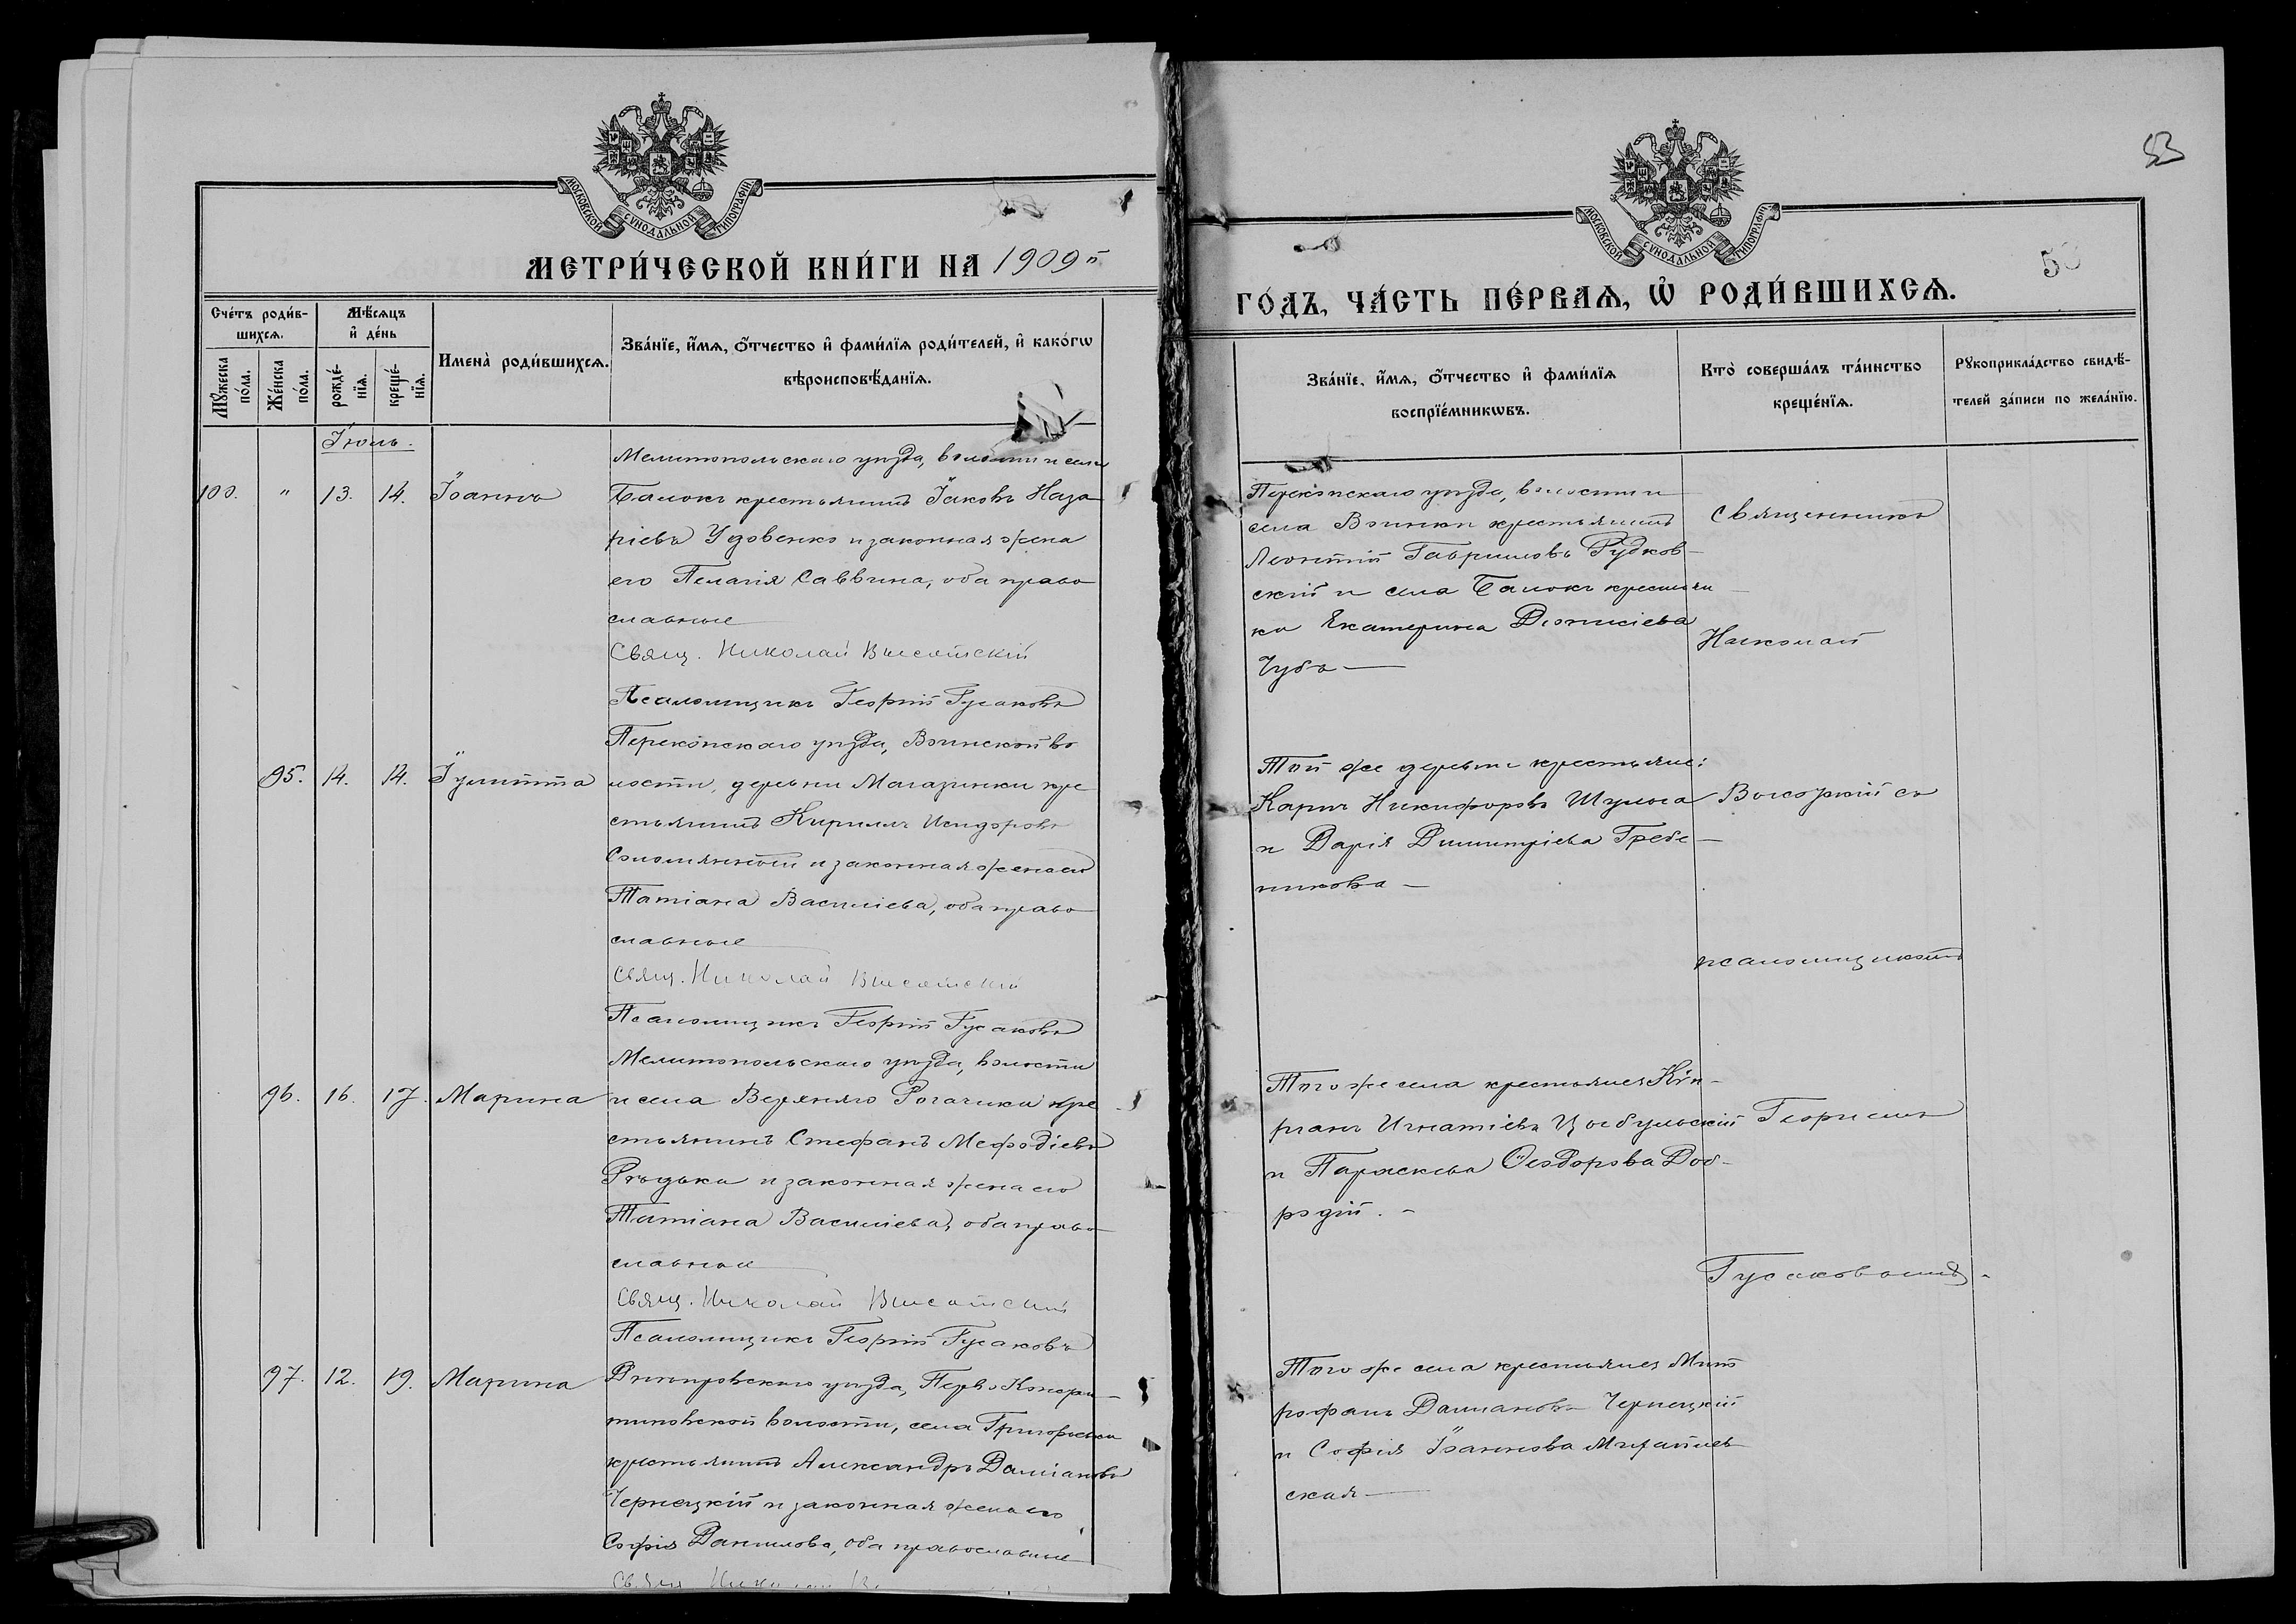 МОСКОВСКОЙ СѴНОДАЛЬНОЙ ТИПОГРАФІИ
МЕТРИ́ЧЕСКОЙ КНИ́ГИ НА 1909й
Сче́тъ роди́в-
шихсѧ.
Мꙋ́жеска по́ла.
Же́нска по́ла.
Мѣ́сѧцъ
и҆ де́нь
рожде́-
нїѧ.
креще́-
нїѧ.
Имена̀ роди́вшихсѧ.
Зва́нїе, и҆́мѧ, ѻ҆́тчество и҆ фами́лїѧ роди́телей, и҆ како́гѡ
вѣроисповѣ́данїѧ.
Іюль.
Мелитопольскаго уѣзда, волости и села
100. " 13. 14. Іоаннъ Балокъ крестьянинъ Іаковъ Наза
ріевъ Удовенко и законная жена
его Пелагія Саввина, оба право
славные
Свящ. Николай Высотскій
Псаломщикъ Георгій Гусаковъ
Перекопскаго уѣзда, Воинской во
95. 14. 14. Іулитта лости, деревни Магазинки кре
стьянинъ Кириллъ Исидоровъ
Соломянный и законная жена его
Татіана Василіева, оба право
славные
Свящ. Николай Высотскій
Псаломщикъ Георгій Гусаковъ
Мелитопольскаго уѣзда, волости
96. 16. 17. Марина и села Верхняго Рогачика кре
стьянинъ Стефанъ Меѳодіевъ
Рѣдька и законная жена его
Татіана Василіева, оба право
славные
Свящ. Николай Высотскій
Псаломщикъ Георгій Гусаковъ
97. 12. 19. Марина Днѣпровскаго уѣзда, Перво Констан
тиновской волости, села Григорьевки
крестьянинъ Александръ Даміановъ
Чернецкій и законная жена его
Софія Данилова, оба православные
Свящ. Николай
53
МОСКОВСКОЙ СѴНОДАЛЬНОЙ ТИПОГРАФІИ
ГО́ДЪ, ЧА́СТЬ ПЕ́РВАѦ, Ѡ҆ РОДИ́ВШИХСѦ.
Зва́нїе, и҆́мѧ, ѻ҆́тчество и҆ фами́лїѧ
воспрїе́мникѡвъ.
Кто̀ соверша́лъ та́инство
креще́нїѧ.
Рꙋкоприкла́дство свидѣ́-
телей за́писи по жела́нїю.
Перекопскаго уѣзда, волости и
села Воинки крестьянинъ
Леонтій Гавриловъ Рудков-
скій и села Балокъ крестьян
ка Екатерина Діонисіева
Чубъ
Священникъ
Николай
Той же деревни крестьяне:
Карпъ Никифоровъ Шульга
и Дарія Димитріева Гребе-
никова
Высоцкій съ
псаломщикомъ
Того же села крестьяне Кѵп-
ріанъ Игнатіевъ Цыбульскій
и Параскева Ѳеодорова Доб-
родій.
Георгіемъ
Гусаковымъ.
Того же села крестьяне Мит
рофанъ Даміановъ Чернецкій
и Софія Іоаннова Михайлев
ская